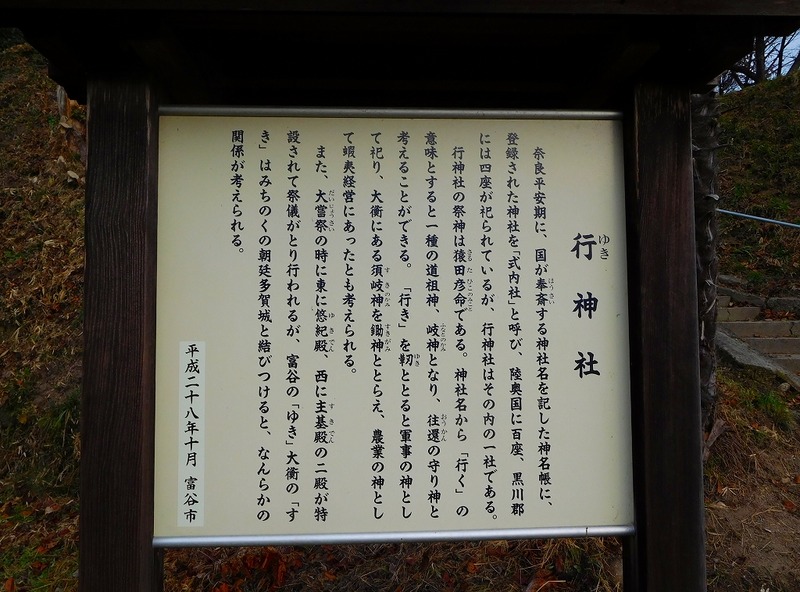 行神社
奈良平安期に、国が奉斎する神社名を記した神名帳に、
登録された神社を「式内社」と呼び、陸奥国に百座、黒川郡
には四座が祀られているが、行神社はその内の一社である。
行神社の祭神は猿田彦命である。神社名から「行く」の
意味とすると一種の道祖神、岐神となり、往還の守り神と
考えることができる。「行き」を靭ととると軍事の神とし
て祀り、大衡にある須岐神を鋤神ととらえ、農業の神とし
て蝦夷経営にあったとも考えられる。
また、大嘗祭の時に東に悠紀殿、西に主基殿の二殿が特
設されて祭儀がとり行われるが、富谷の「ゆき」大衡の「す
き」はみちのくの朝廷多賀城と結びつけると、なんらかの
関係が考えられる。
平成二十八年十月 富谷市